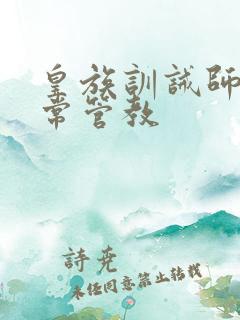 皇族訓誡師
常管教
詩堯
未经同意禁止转载